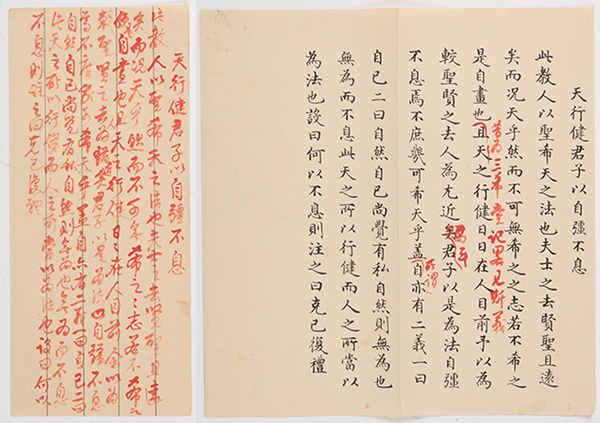 天行健君子以自彊不息
此教人以聖希天之法也夫士之去賢聖且遠
矣而況天乎然而不可無希之之志若不希之
是自畫也且天之行健日日在人目前予以為
昔為三希堂記畧見斯義
較聖賢之去人為尤近矣君子以是為法自彊
不息焉不庶幾可希天乎蓋自亦有二義一曰
所謂
自己二曰自然自己尚覺有私自然則無為也
無為而不息此天之所以行健而人之所當以
為法也設曰何以不息則注之曰克己復禮
天行健君子以自彊不息
此教人以聖希天之法也夫士之去賢聖且遠
矣而況天乎然而不可無希之之志若不希之
是自畫也且天之行健日日在人目前余以為
較聖賢之去人為尤近君子以是為法自彊不息
焉不庶幾可希天乎蓋自亦有二義一曰自己二曰
自然自己尚覺有私自然則無為也無為而不息
此天之所以行健而人之所當以為法也設曰何以
不息則注之曰克己復禮